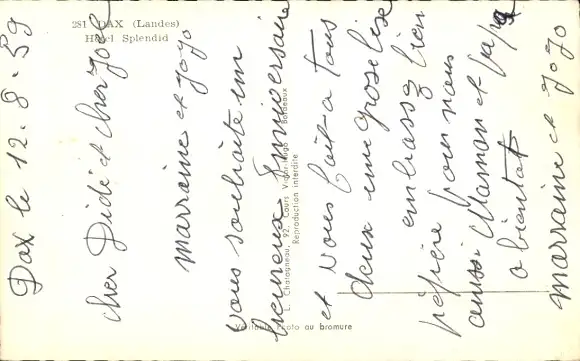 281 DAX (Landes)
Hôtel Splendid
Dax le 12.8.59
cher Didi et cher Joël
marraine et jojo
vous souhaite un
heureux Anniversaire
et vous fait a tous
deux une grose bise
embrassez bien
pépère pour nous
aussi Maman et Papa
a bientot
marraine et Jojo
L. Chatagneau, 92, Cours Victor-Hugo Bordeaux
Reproduction interdite
Véritable Photo au bromure